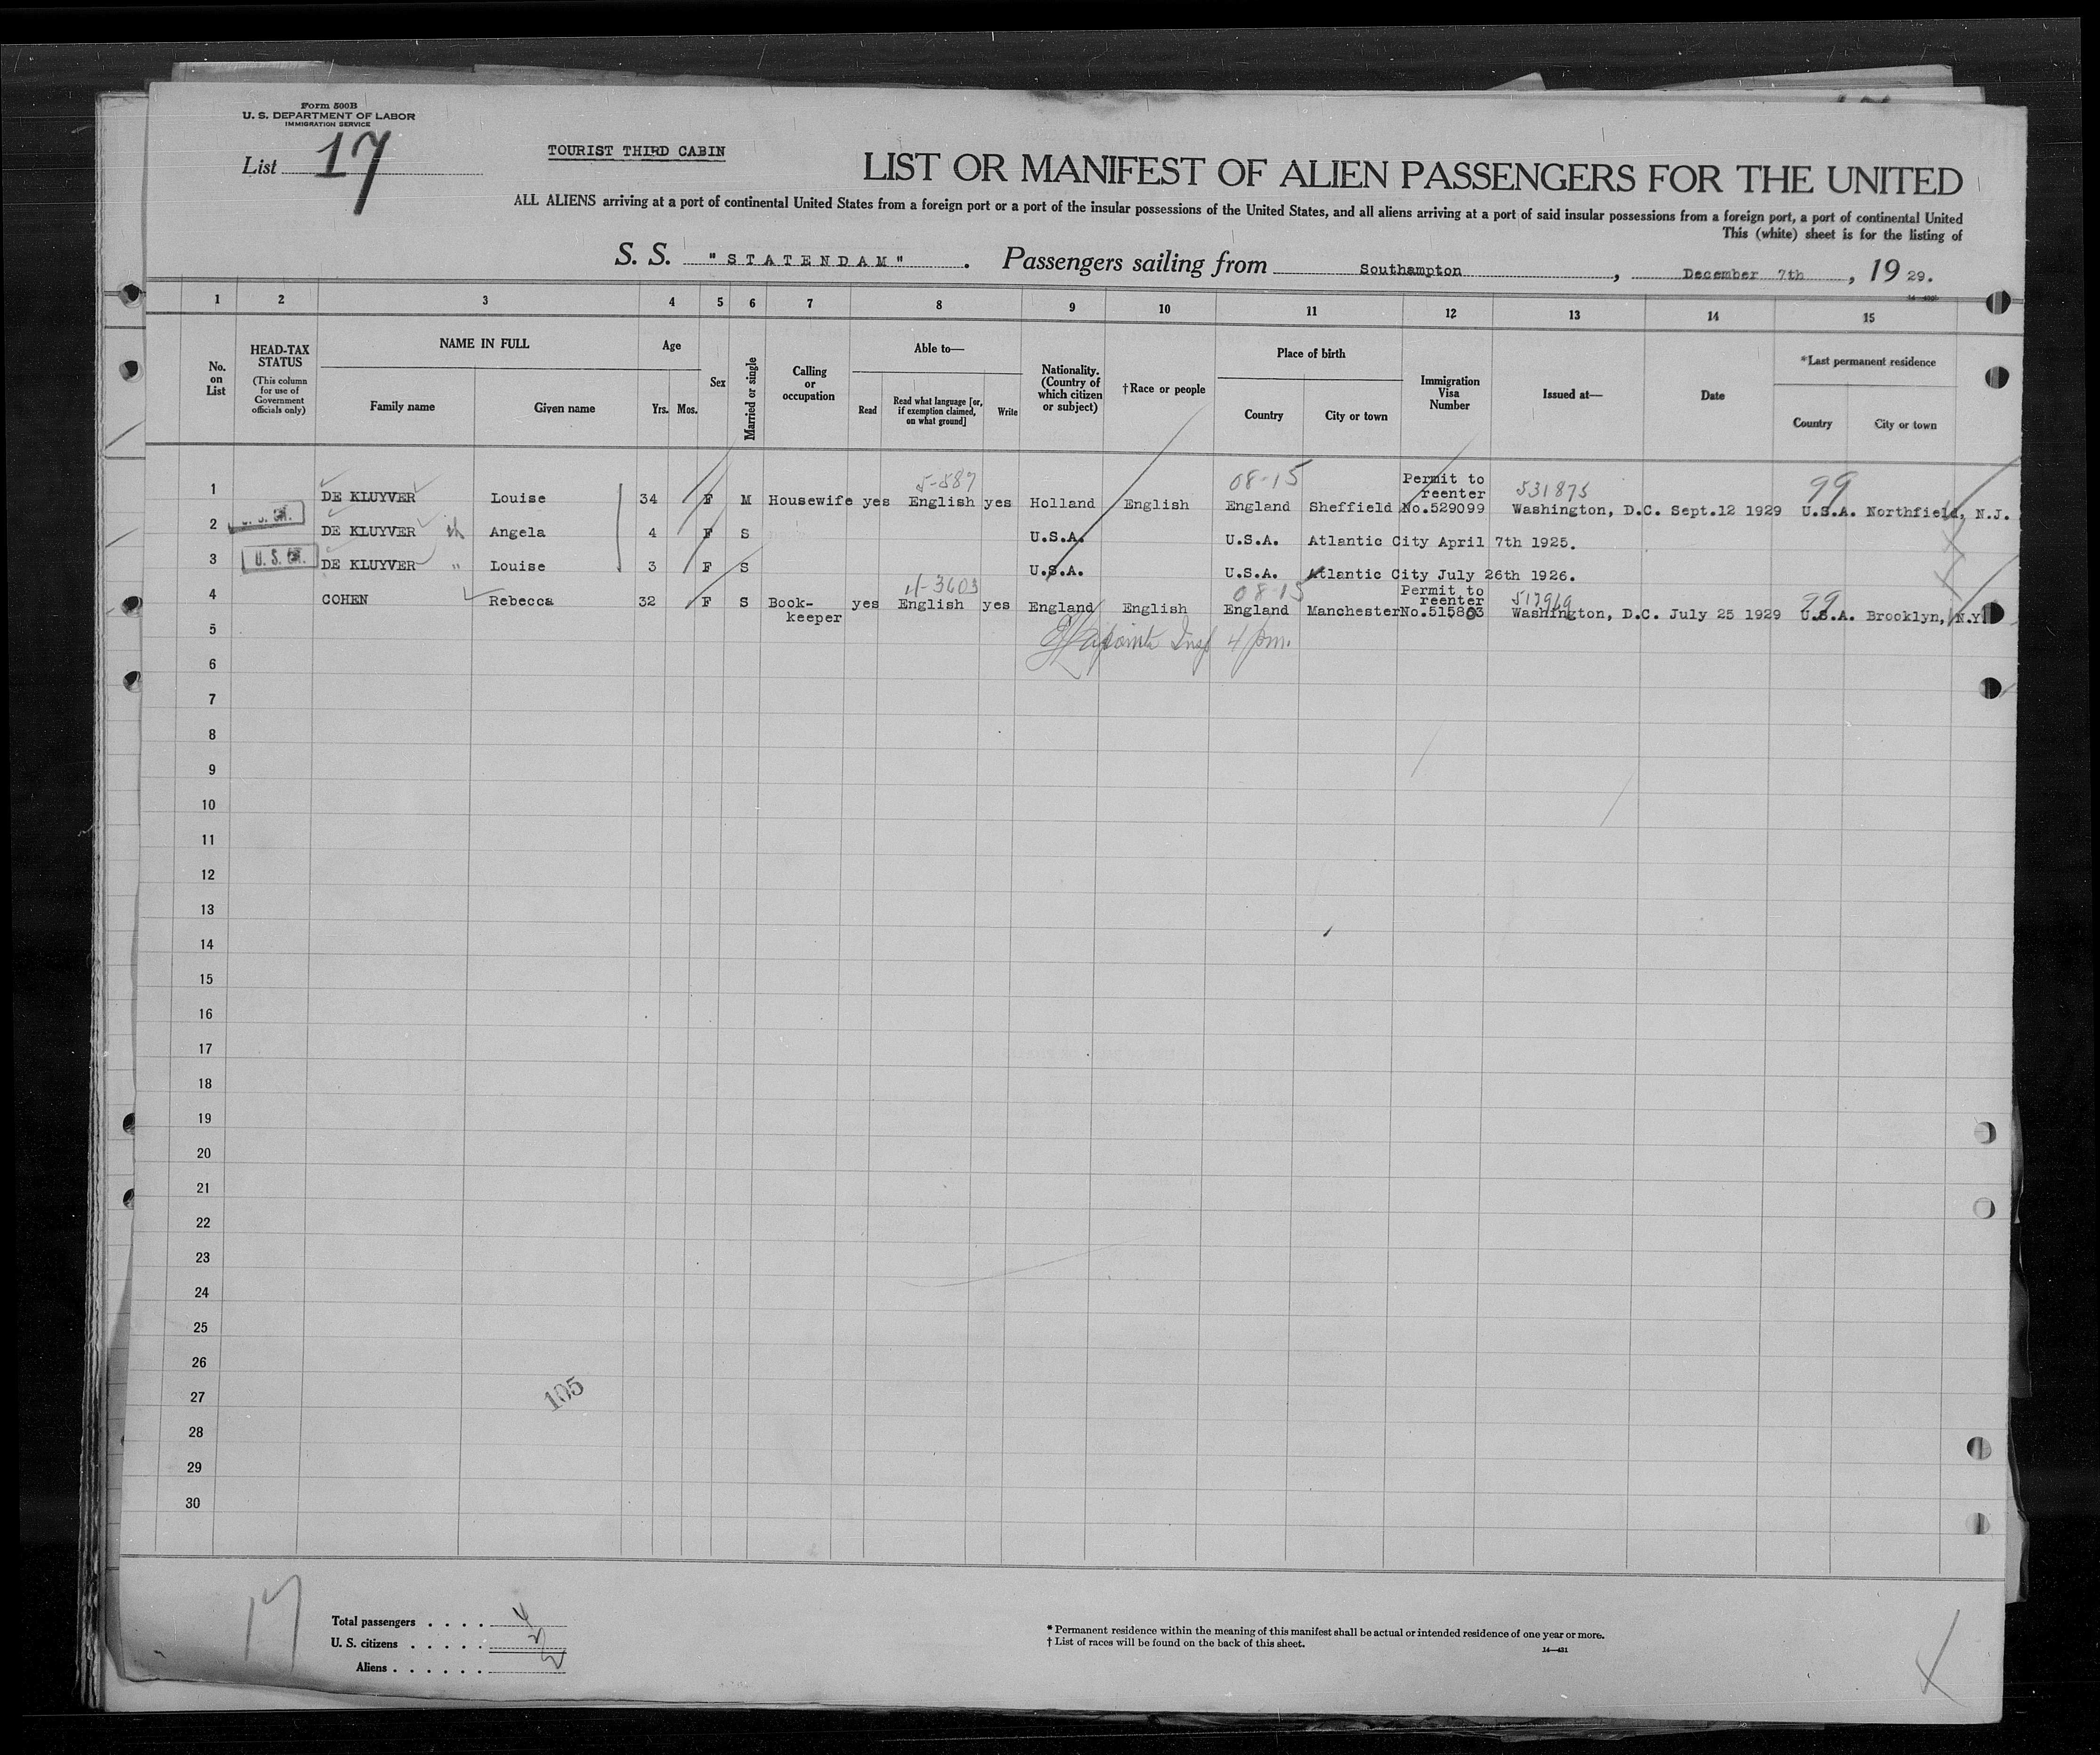 Form 500B
U. S. DEPARTMENT OF LABOR
IMMIGRATION SERVICE
List 17
TOURIST THIRD CABIN
LIST OR MANIFEST OF ALIEN PASSENGERS FOR THE UNITED
ALL ALIENS arriving at a port of continental United States from a foreign port or a port of the insular possessions of the United States, and all aliens arriving at a port of said insular possessions from a foreign port, a port of continental United
This (white) sheet is for the listing of
S. S. "STATENDAM". Passengers sailing from Southampton, December 7th, 19 29.
1 2 3 4 5 6 7 8 9 10 11 12 13 14 15
No. on List
HEAD-TAX STATUS (This column for use of Government officials only)
NAME IN FULL
Family name Given name
Age
Yrs. Mos.
Sex
Married or single
Calling or occupation
Able to—
Read
Read what language [or, if exemption claimed, on what ground]
Write
Nationality. (Country of which citizen or subject)
†Race or people
Place of birth
Country City or town
Immigration Visa Number
Issued at—
Date
*Last permanent residence
Country City or town
5-587 08-15 Permit to reenter 531875 99
1 DE KLUYVER Louise 34 F M Housewife yes English yes Holland English England Sheffield No.529099 Washington, D.C. Sept.12 1929 U.S.A. Northfield, N.J.
2 DE KLUYVER Angela 4 F S U.S.A. U.S.A. Atlantic City April 7th 1925.
3 U. S. CIT. DE KLUYVER " Louise 3 F S U.S.A. U.S.A. Atlantic City July 26th 1926.
3603 08-15 Permit to reenter 99
4 COHEN Rebecca 32 F S Book-keeper yes English yes England English England Manchester No.515803 Washington, D.C. July 25 1929 U.S.A. Brooklyn, N.Y.
5 Insp 4 pm.
6
7
8
9
10
11
12
13
14
15
16
17
18
19
20
21
22
23
24
25
26
27
105
28
29
30
17
Total passengers . . . . 4
U. S. citizens . . . . . 2
Aliens . . . . . . 2
* Permanent residence within the meaning of this manifest shall be actual or intended residence of one year or more.
† List of races will be found on the back of this sheet.
14—431